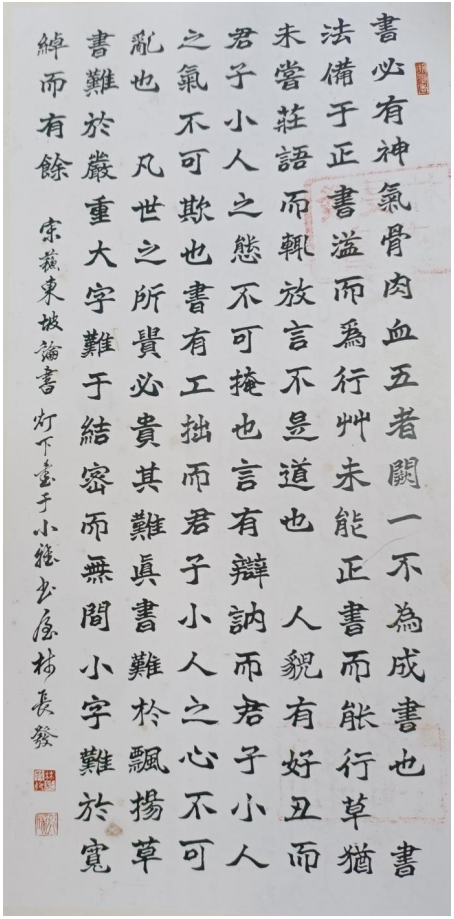 書必有神氣骨肉血五者闕一不為成書也　書
法備于正書溢而爲行艸未能正書而能行草猶
未嘗莊語而輒放言不是道也　人貌有好丑而
君子小人之態不可掩也言有辯訥而君子小人
之氣不可欺也書有工拙而君子小人之心不可
亂也　凡世之所貴必貴其難真書難於飄揚草
書難於嚴重大字難于結密而無間小字難於寬
綽而有餘　宋蘇東坡論書　灯下書于小雅書屋林長發